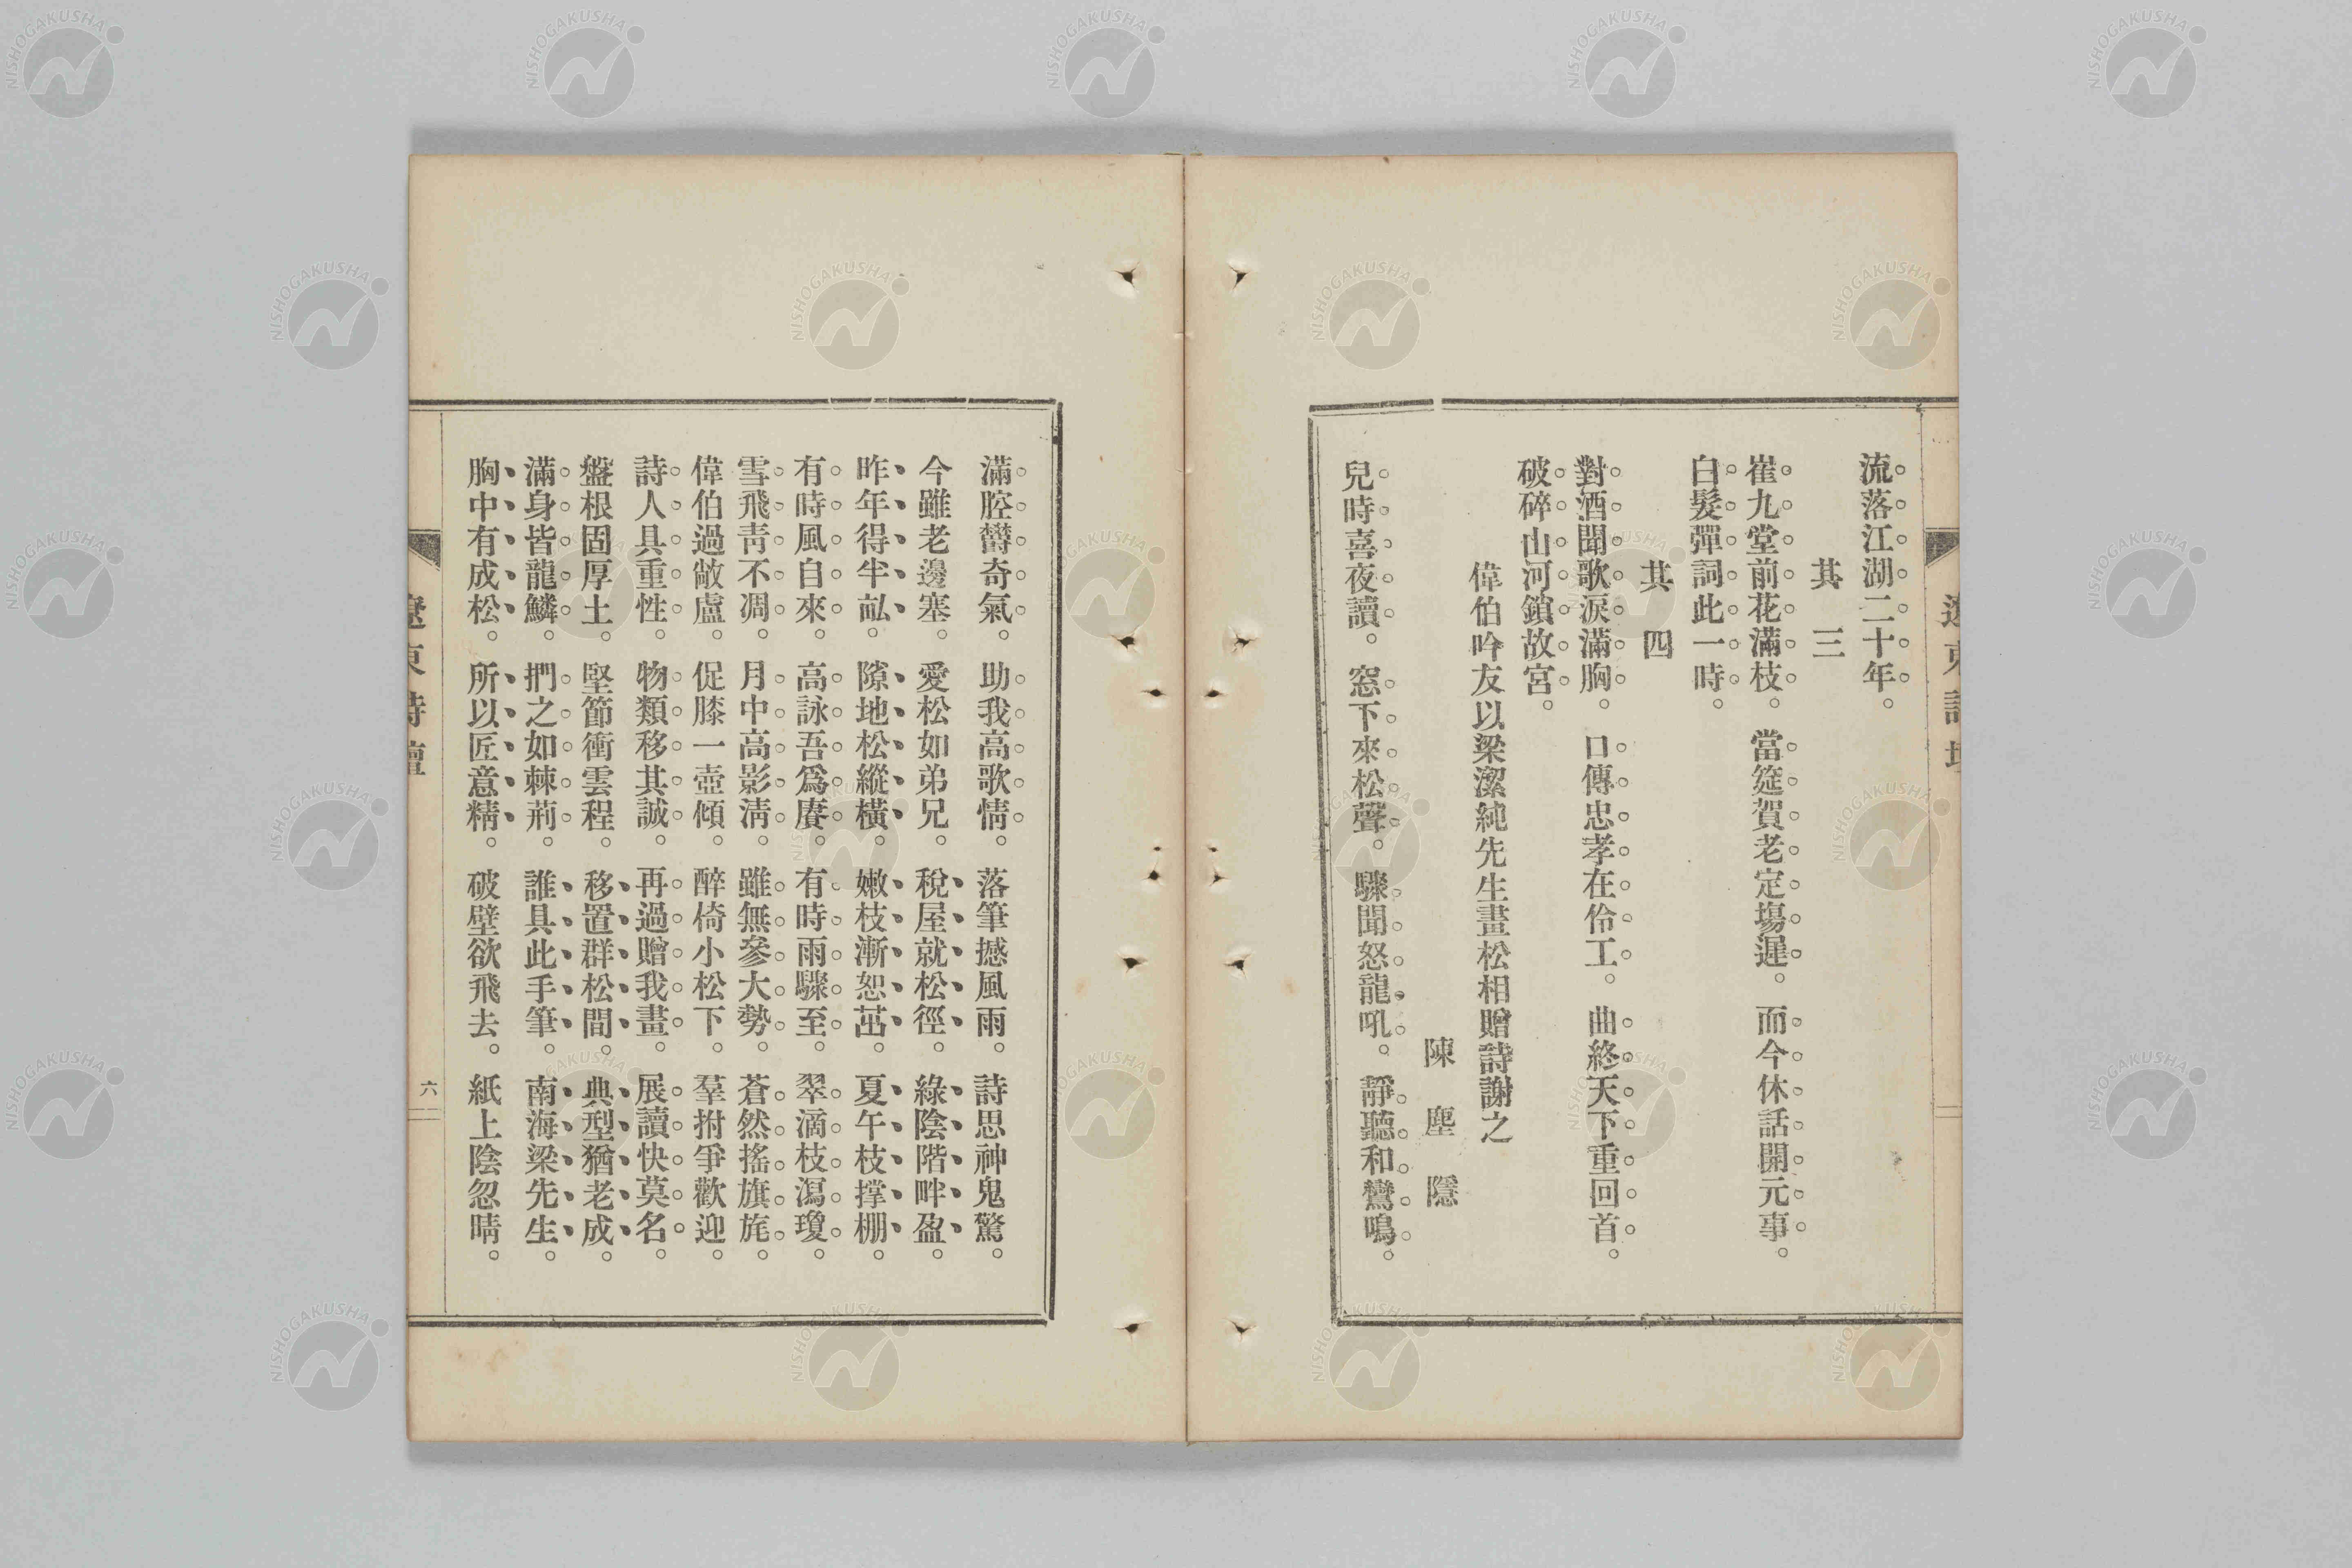 流落江湖二十年。
其三
崔九堂前花滿枝。當筵賀老定塲遲。而今休話開元事。
白髮彈詞此一時。
其四
對酒聞歌淚滿胸。口傳忠孝在伶工。曲終天下重回首。
破碎山河鎖故宮。
偉伯吟友以梁潔純先生畫松相贈詩謝之
陳塵隱
兒時喜夜讀。窓下來松聲。驟聞怒龍吼。靜聽和鸞鳴。
滿腔欝奇氣。助我高歌情。落筆撼風雨。詩思神鬼驚。
今雖老邊塞。愛松如弟兄。稅屋就松徑。綠陰階畔盈。
昨年得半畝。隙地松縱橫。嫩枝漸恕茁。夏午枝撑棚。
有時風自來。高詠吾爲賡。有時雨驟至。翠滴枝瀉瓊。
雪飛靑不凋。月中高影淸。雖無參大勢。蒼然搖旗旄。
偉伯過敝盧。促膝一壺傾。醉倚小松下。羣拊爭歡迎。
詩人具重性。物類移其誠。再過贈我畫。展讀快莫名。
盤根固厚土。堅節衝雲程。移置群松間。典型猶老成。
滿身皆龍鱗。捫之如棘荊。誰具此手筆。南海梁先生。
胸中有成松。所以匠意精。破壁欲飛去。紙上陰忽晴。
遼東詩壇
六
NISHOGAKUSHA